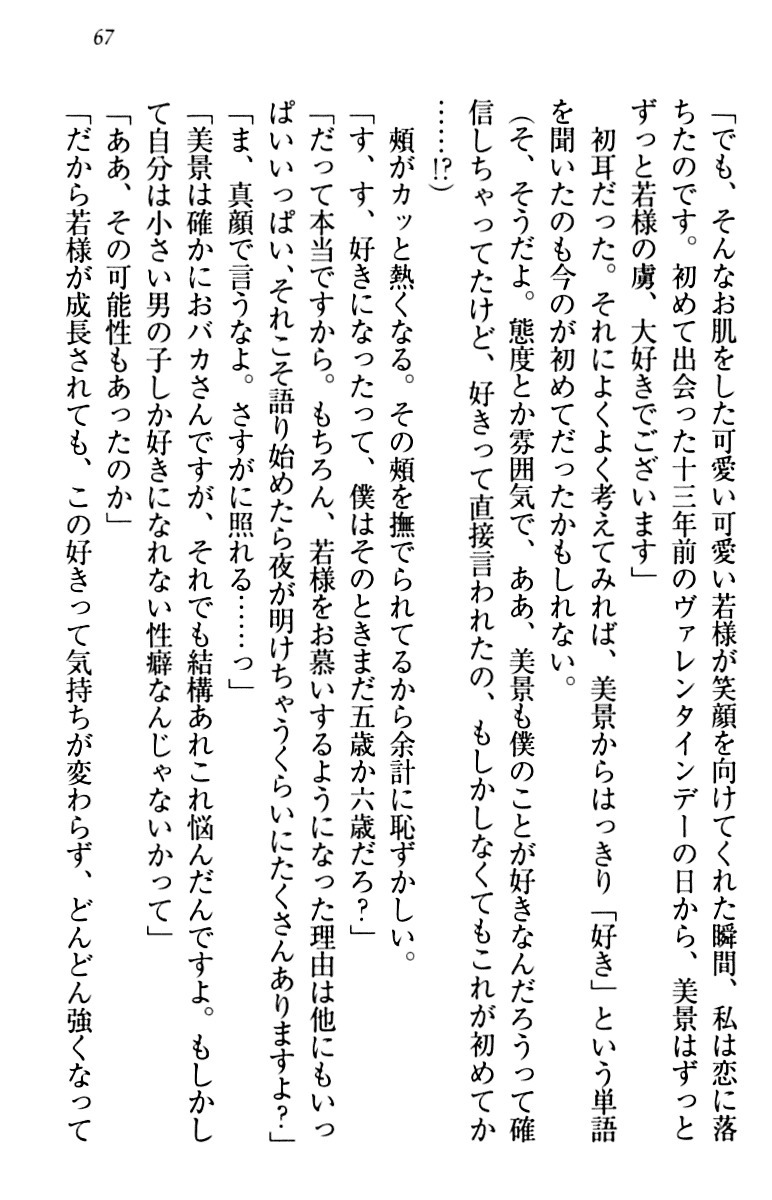 67
「でも、そんなお肌をした可愛い可愛い若様が笑顔を向けてくれた瞬間、私は恋に落
ちたのです。初めて出会った十三年前のヴァレンタインデーの日から、美景はずっと
ずっと若様の虜、大好きでございます」
初耳だった。それによくよく考えてみれば、美景からはっきり「好き」という単語
を聞いたのも今のが初めてだったかもしれない。
（そ、そうだよ。態度とか雰囲気で、ああ、美景も僕のことが好きなんだろうって確
信しちゃってたけど、好きって直接言われたの、もしかしなくてもこれが初めてか
……!?）
頰がカッと熱くなる。その頰を撫でられてるから余計に恥ずかしい。
「す、す、好きになったって、僕はそのときまだ五歳か六歳だろ？」
「だって本当ですから。もちろん、若様をお慕いするようになった理由は他にもいっ
ぱいいっぱい、それこそ語り始めたら夜が明けちゃうくらいにたくさんありますよ？」
「ま、真顔で言うなよ。さすがに照れる……っ」
「美景は確かにおバカさんですが、それでも結構あれこれ悩んだんですよ。もしかし
て自分は小さい男の子しか好きになれない性癖なんじゃないかって」
「ああ、その可能性もあったのか」
「だから若様が成長されても、この好きって気持ちが変わらず、どんどん強くなって